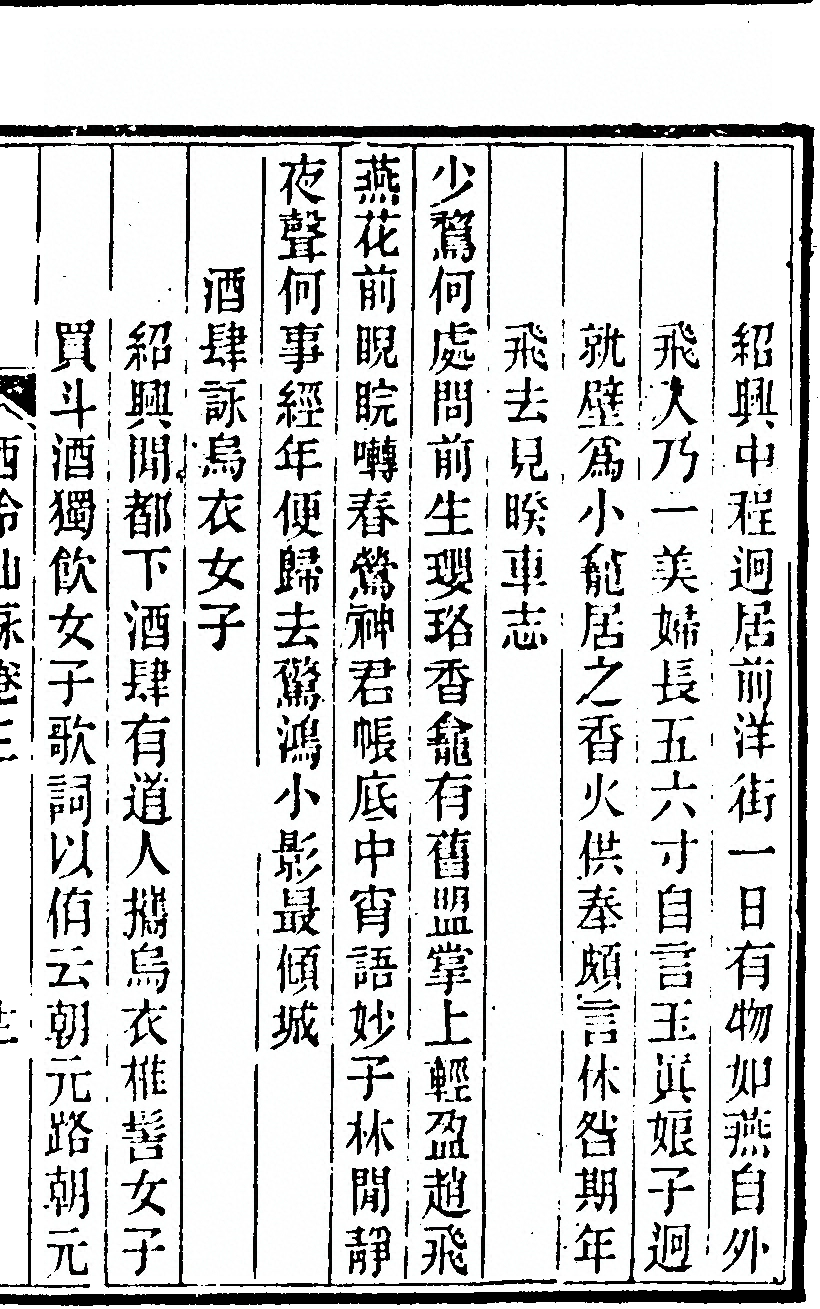 紹興中程迥居前洋街一日有物如燕自外
飛入乃一美婦長五六寸自言玉眞娘子迥
就壁爲小龕居之香火供奉頗言休咎期年
飛去見睽車志
少鶩何處問前生瓔珞香龕有舊盟掌上輕盈趙飛
燕花前睍睆囀春鶯神君帳底中宵語妙子林閒靜
夜聲何事經年便歸去驚鴻小影最傾城
酒肆詠烏衣女子
紹興閒都下酒肆有道人攜烏衣椎髻女子
買斗酒獨飮女子歌詞以侑云朝元路朝元
西泠仙詠卷三